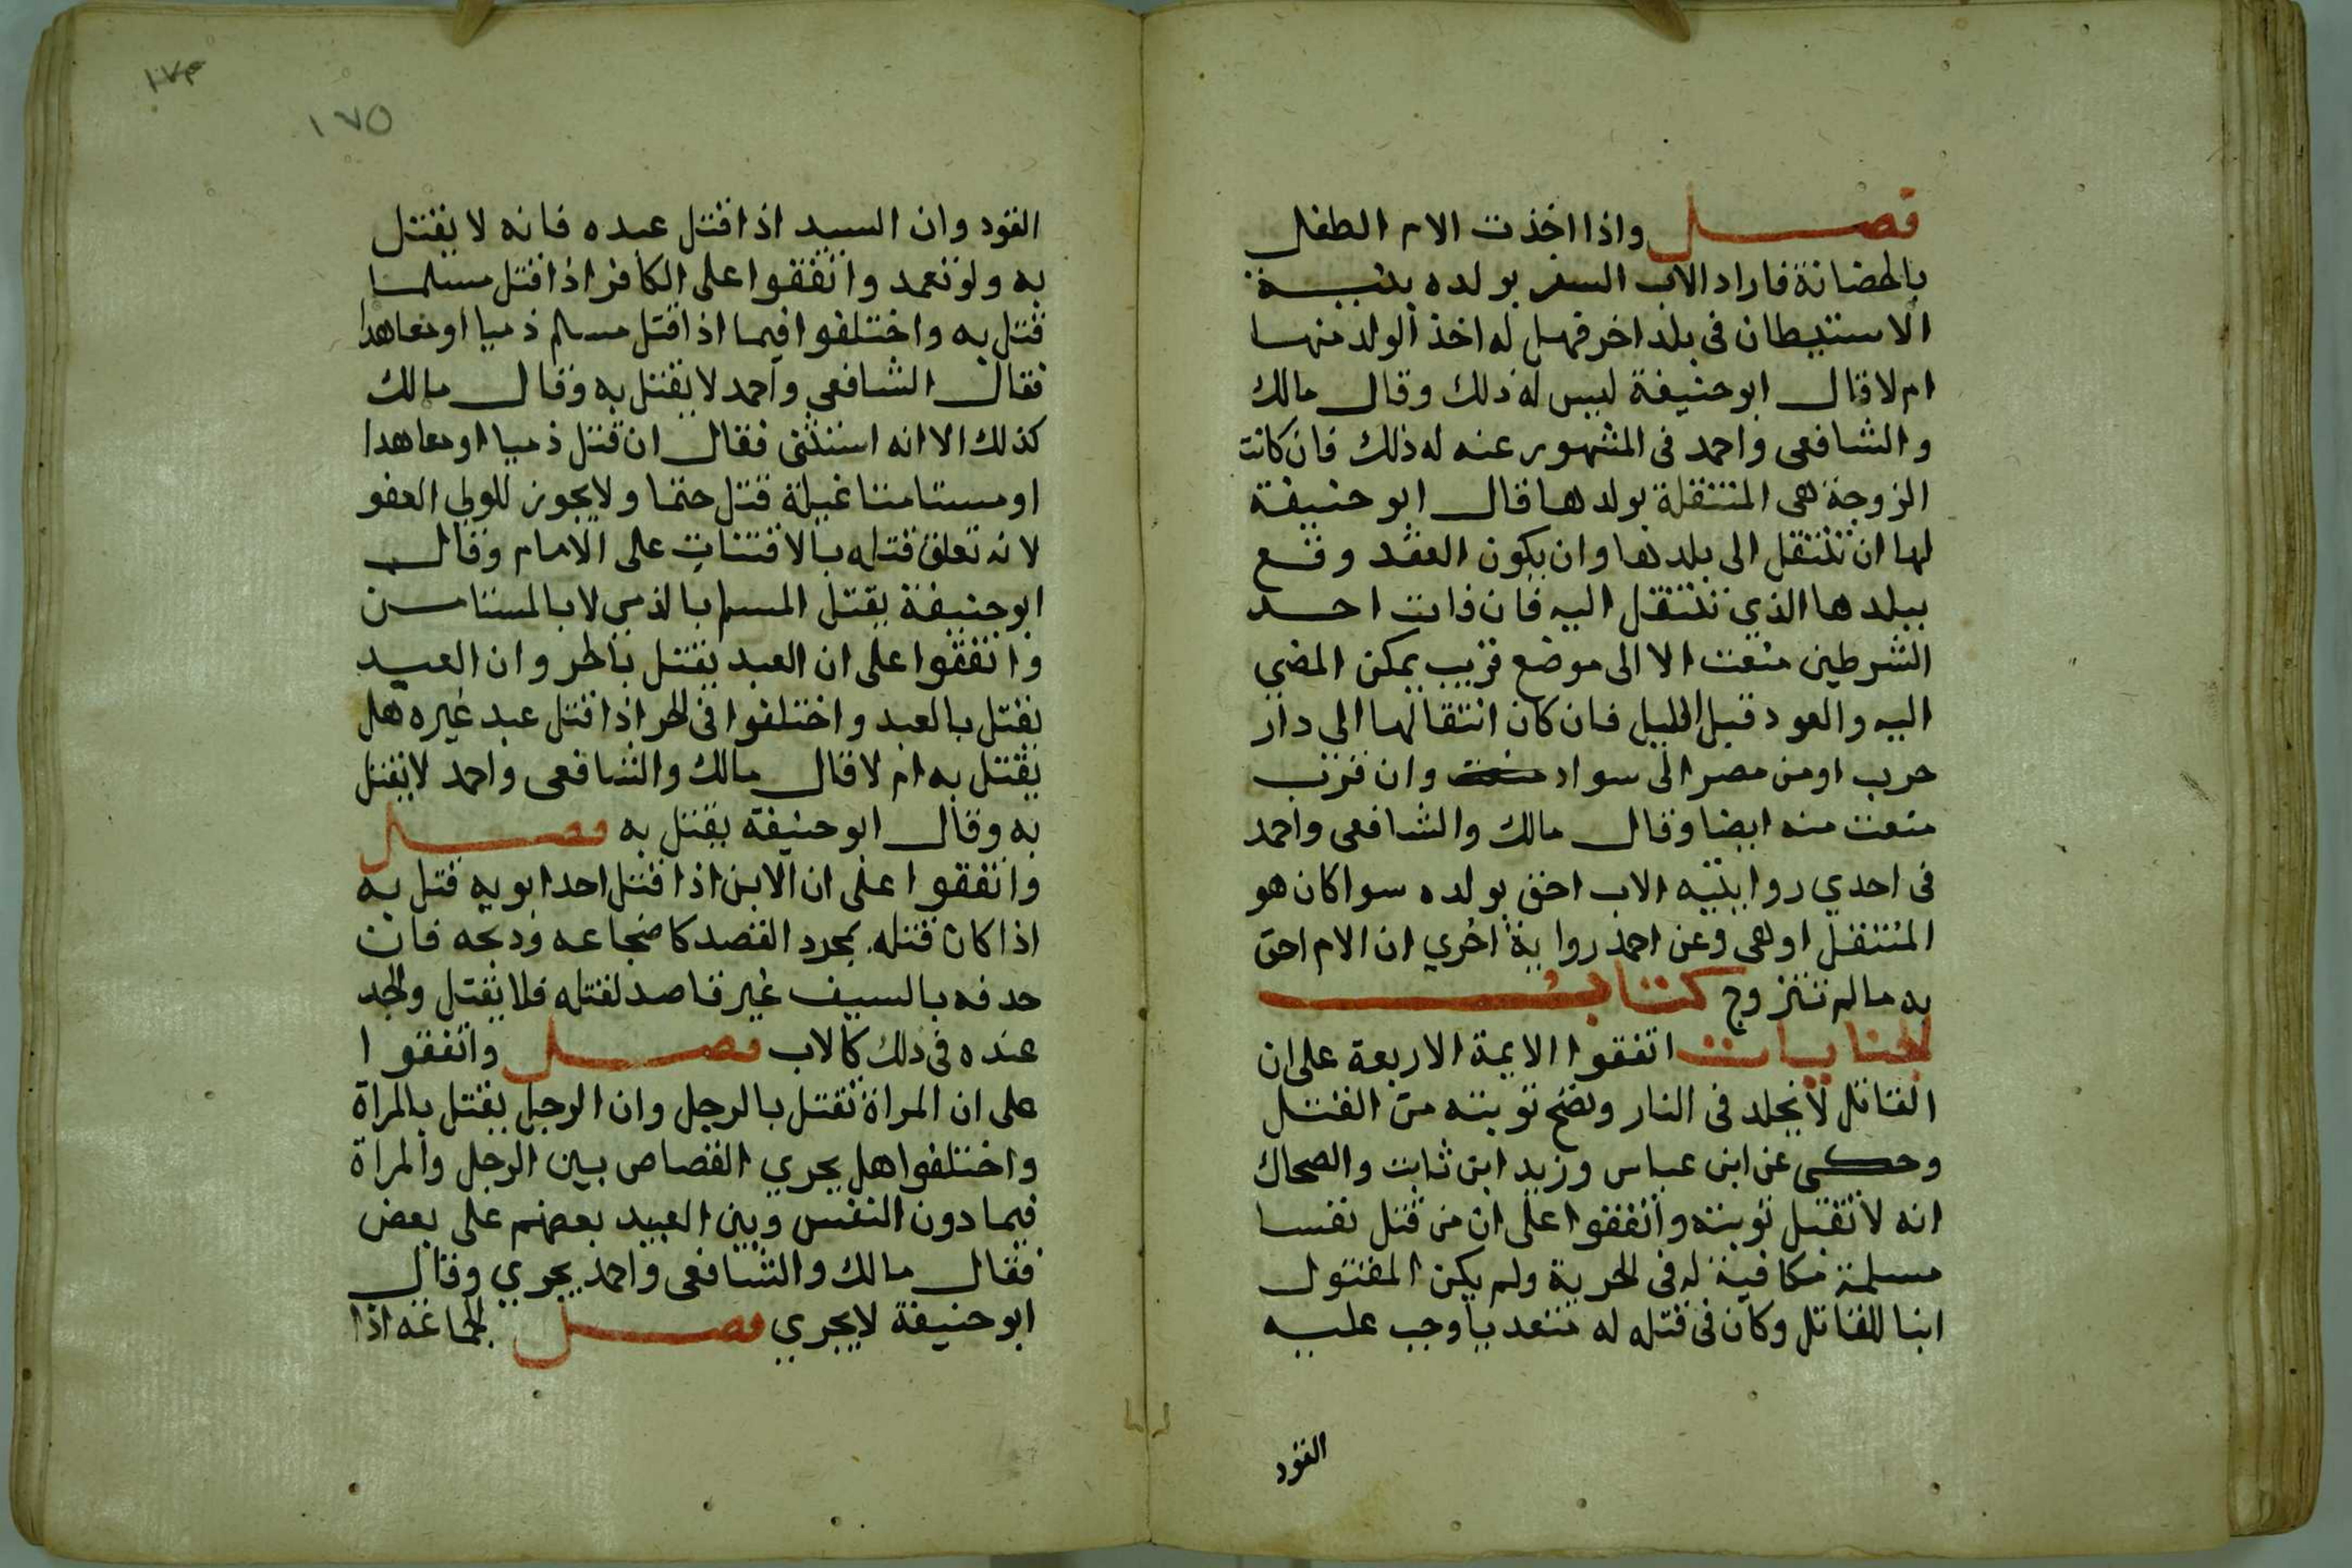 فصل واذا اخذت الام الطفل
بالحضانة فاراد الاب السفر بولده بنية
الاستيطان فى بلد اخر فهل له اخذ الولد منها
ام لا قال ابو حنيفة ليس له ذلك وقال مالك
والشافعى واحمد فى المشهور عنه له ذلك فان كانت
الزوجة هى المنتقلة بولدها قال ابو حنيفة
لها ان تنتقل الى بلدها وان يكون العقد وقع
ببلدها الذي تنتقل اليه فان فات احد
الشرطين منعت الا الى موضع قريب يمكن المضي
اليه والعود قبل الليل فان كان انتقالها الى دار
حرب او من مصر الى سواد منعت وان قرب
منعت منه ايضا وقال مالك والشافعى واحمد
فى احدي روايتيه الاب احق بولده سوا كان هو
المنتقل او هى وعن احمد رواية اخري ان الام احق
به مالم تتزوج كتاب
الجنايات اتفقوا الايمة الاربعة على ان
القاتل لا يخلد فى النار وتصح توبته من القتل
وحكى عن ابن عباس وزيد ابن ثابت والضحاك
انه لا تقبل توبته واتفقوا على ان من قتل نفسا
مسلمة مكافية له فى الحرية ولم يكن المقتول
ابنا للقاتل وكان فى قتله له متعديا وجب عليه
القود
١٧٣
١٧٥
القود وان السيد اذا قتل عبده فانه لا يقتل
به ولو تعمد واتفقوا على الكافر اذا قتل مسلما
قتل به واختلفوا فيما اذا قتل مسلم ذميا او معاهدا
فقال الشافعي واحمد لا يقتل به وقال مالك
كذلك الا انه استثنى فقال ان قتل ذميا او معاهدا
او مستامنا غيلة قتل حتما ولا يجوز للولي العفو
لانه تعلق قتله بالافتئات على الامام وقال
ابو حنيفة يقتل المسلم بالذمي لا بالمستامن
واتفقوا على ان العبد يقتل بالحر وان العبد
يقتل بالعبد واختلفوا فى الحر اذا قتل عبد غيره هل
يقتل به ام لا قال مالك والشافعى واحمد لا يقتل
به وقال ابو حنيفة يقتل به فصل
واتفقوا على ان الابن اذا قتل احد ابويه قتل به
اذا كان قتله بمجرد القصد كاضجاعه وذبحه فان
حذفه بالسيف غير قاصد لقتله فلا يقتل والجد
عنده فى ذلك كالاب فصل واتفقوا
على ان المراة تقتل بالرجل وان الرجل يقتل بالمراة
واختلفوا هل يجري القصاص بين الرجل والمراة
فيما دون النفس وبين العبيد بعضهم على بعض
فقال مالك والشافعى واحمد يجري وقال
ابو حنيفة لا يجري فصل الجماعة اذا